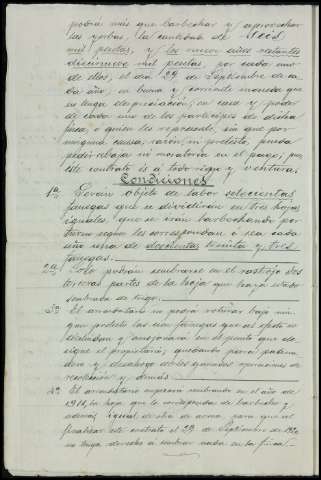 podrá más que barbechar y aprovechar
las yerbas, la cantidad de Seis
mil pesetas, y los nueve años restantes
diecinueve mil pesetas, por cada uno
de ellos, el día 29 de Septiembre de ca
da año, en buena y corriente moneda que
no tenga depreciación, en casa y poder
de cada uno de los partícipes de dicha
finca, ó quien les represente, sin que por
ninguna causa, razón, ni pretesto, pueda
pedir rebaja ni moratoria en el pago, pues
este contrato es á todo riesgo y ventura.
Condiciones
1ª Serán objeto de labor setecientas
fanegas que se dividirán en tres hojas
iguales, que se irán barbechando por
turno según les corresponda ó sea cada
año una de doscientas treinta y tres
fanegas.
2ª Solo podrán sembrarse en el rastrojo dos
terceras partes de la hoja que haya estado
sembrada de trigo.
3ª El arrendatario no podrá roturar bajo nin
gun pretesto las cien fanegas que al efecto se
deslindan y amojonarán en el punto que de
signe el propietario, quedando para pasa
dero y descargo de los ganados, operaciones de
recolección y demás.
4ª El arrendatario empezará sembrando en el año de
1911, la hoja que le corresponda de barbecho y
además igual de otra de para que al
finalizar este contrato el 29 de Septiembre de 1920
no tenga derecho á sembrar nada en la finca.